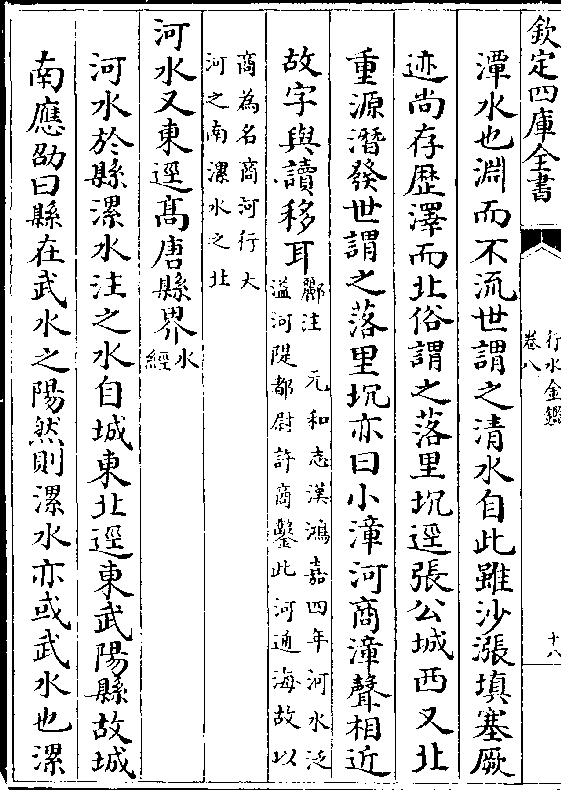 欽定四庫全書
行水金鑑
卷八
十八
潭水也淵而不流世謂之清水自此雖沙漲填塞厥
迹尚存歴澤而北俗謂之落里坈逕張公城西又北
重源潛發世謂之落里坈亦曰小漳河商漳聲相近
故字與讀移耳
酈注　元和志漢鴻嘉四年河水泛
溢河隄都尉許商鑿此河通海故以
商為名商河行大
河之南漯水之北
河水又東逕髙唐縣界
水
經
河水於縣漯水注之水自城東北逕東武陽縣故城
南應劭曰縣在武水之陽然則漯水亦或武水也漯